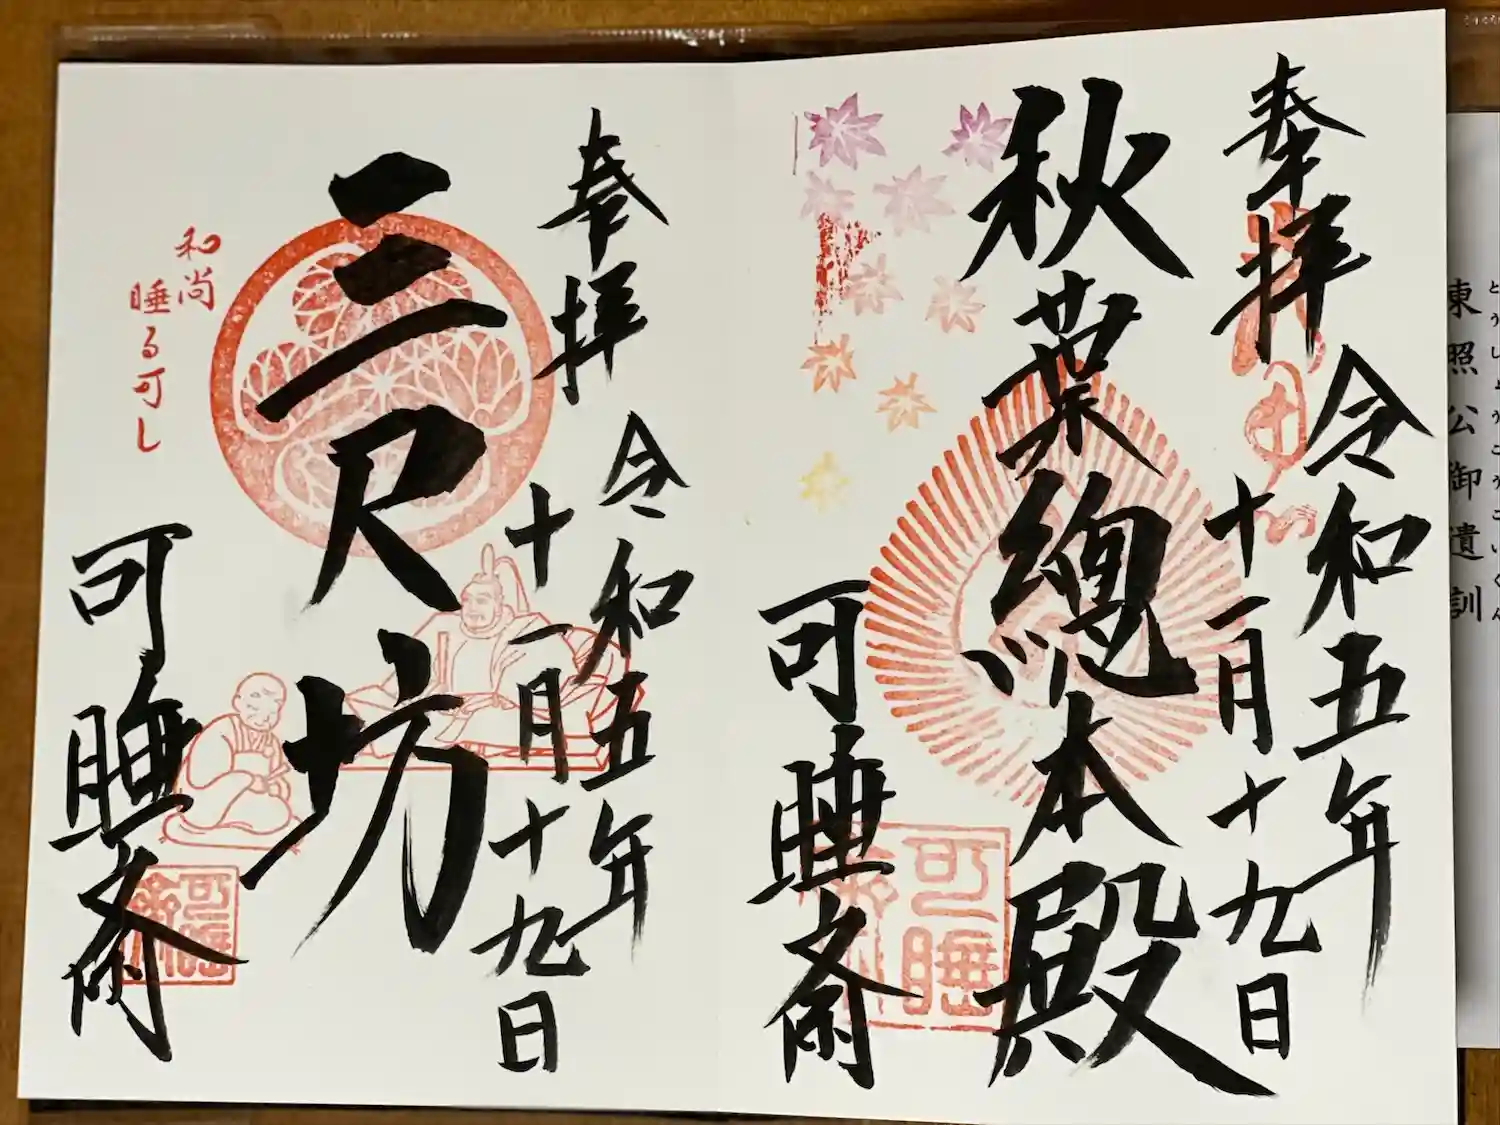 奉拝
令和五年
十一月十九日
秋葉總本殿
可睡斎
可睡
奉拝
令和五年
十一月十九日
三尺坊
和尚
睡る可し
可睡斎
可睡
東照公御遺訓
とうしょうこうごいくん